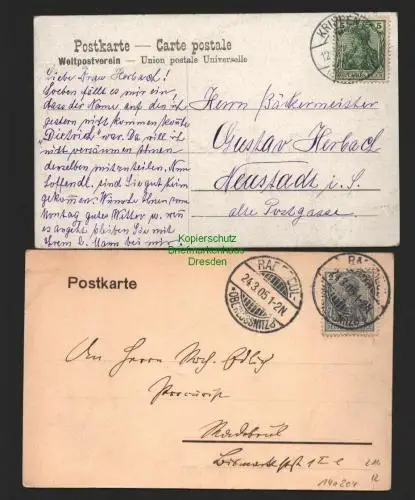 Postkarte — Carte postale
Weltpostverein — Union postale Universelle
Liebe Frau Herbach!
Soeben fällt es mir ein,
dass der Name, auf den ich
gestern nicht kommen konnte
"Dietrich" war. Da will ich
nicht versäumen Ihnen
denselben mitzuteilen. Nun
hoffentl. sind Sie gut heim
gekommen. Wünsche Ihnen vom
Montag gutes Wetter u.
bleiben Sie mit
Ihrem l. Mann bei mir
Herrn Bäckermeister
Gustav Herbach
Neustadt i. S.
alte Postgasse
KRIPPEN
12
5
Kopierschutz
Briefmarkenhaus
Dresden
Postkarte
RADEBEUL
24.3.05.1-2N
*(OBERLÖSSNITZ)*
An Herrn
Prokurist
Radebeul
Bismarckstr 1 I e